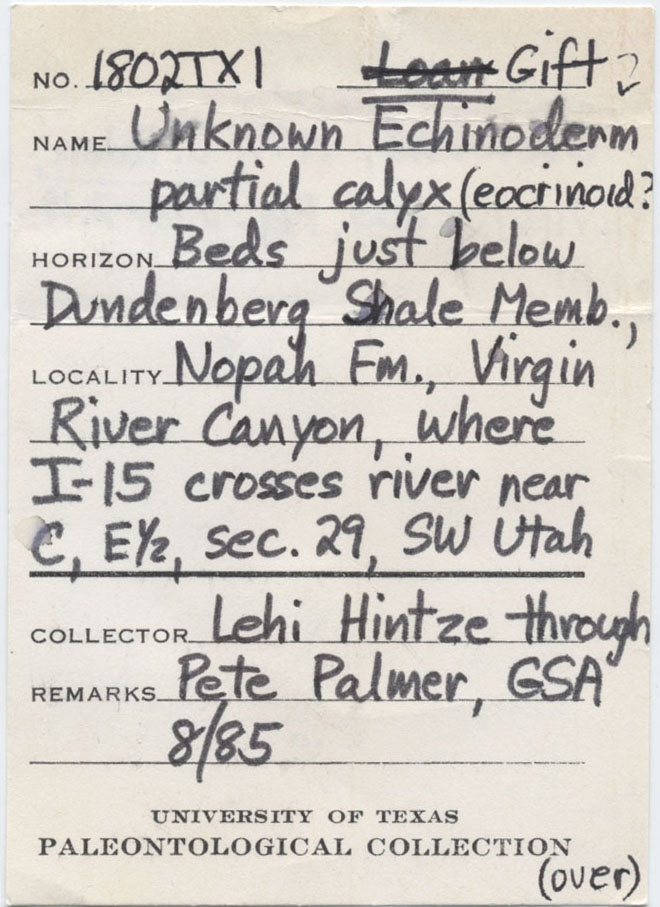 NO. 1802TX1 Loan Gift?
NAME Unknown Echinoderm
partial calyx (eocrinoid?
HORIZON Beds just below
Dundenberg Shale Memb.,
LOCALITY Nopah Fm., Virgin
River Canyon, where
I-15 crosses river near
C, E½, sec. 29, SW Utah
COLLECTOR Lehi Hintze through
REMARKS Pete Palmer, GSA
8/85
UNIVERSITY OF TEXAS
PALEONTOLOGICAL COLLECTION
(over)